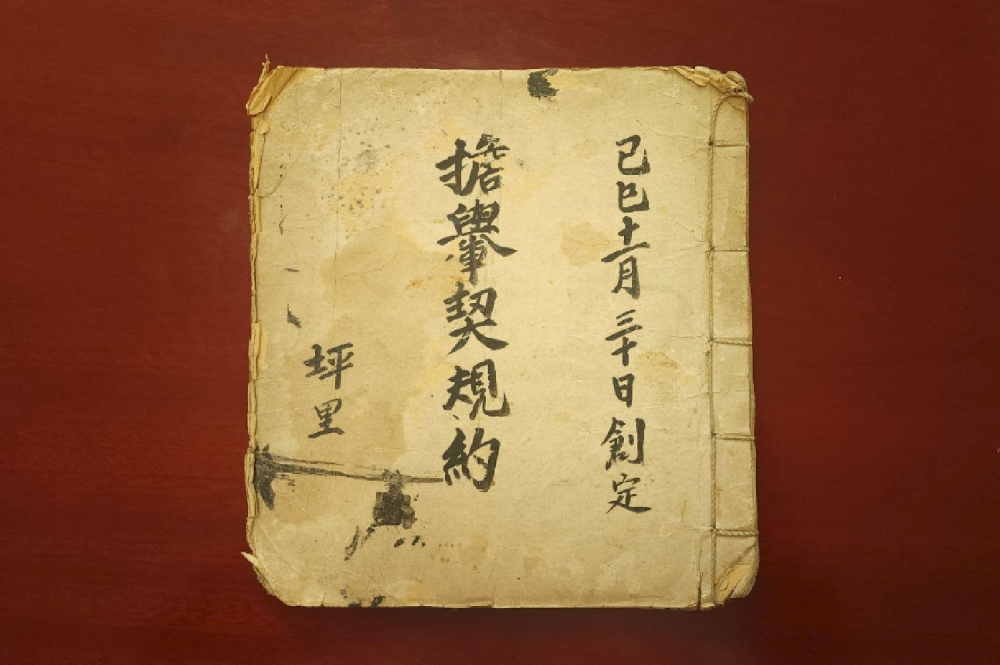 己巳十一月三十日創定
擔轝契規約
坪里